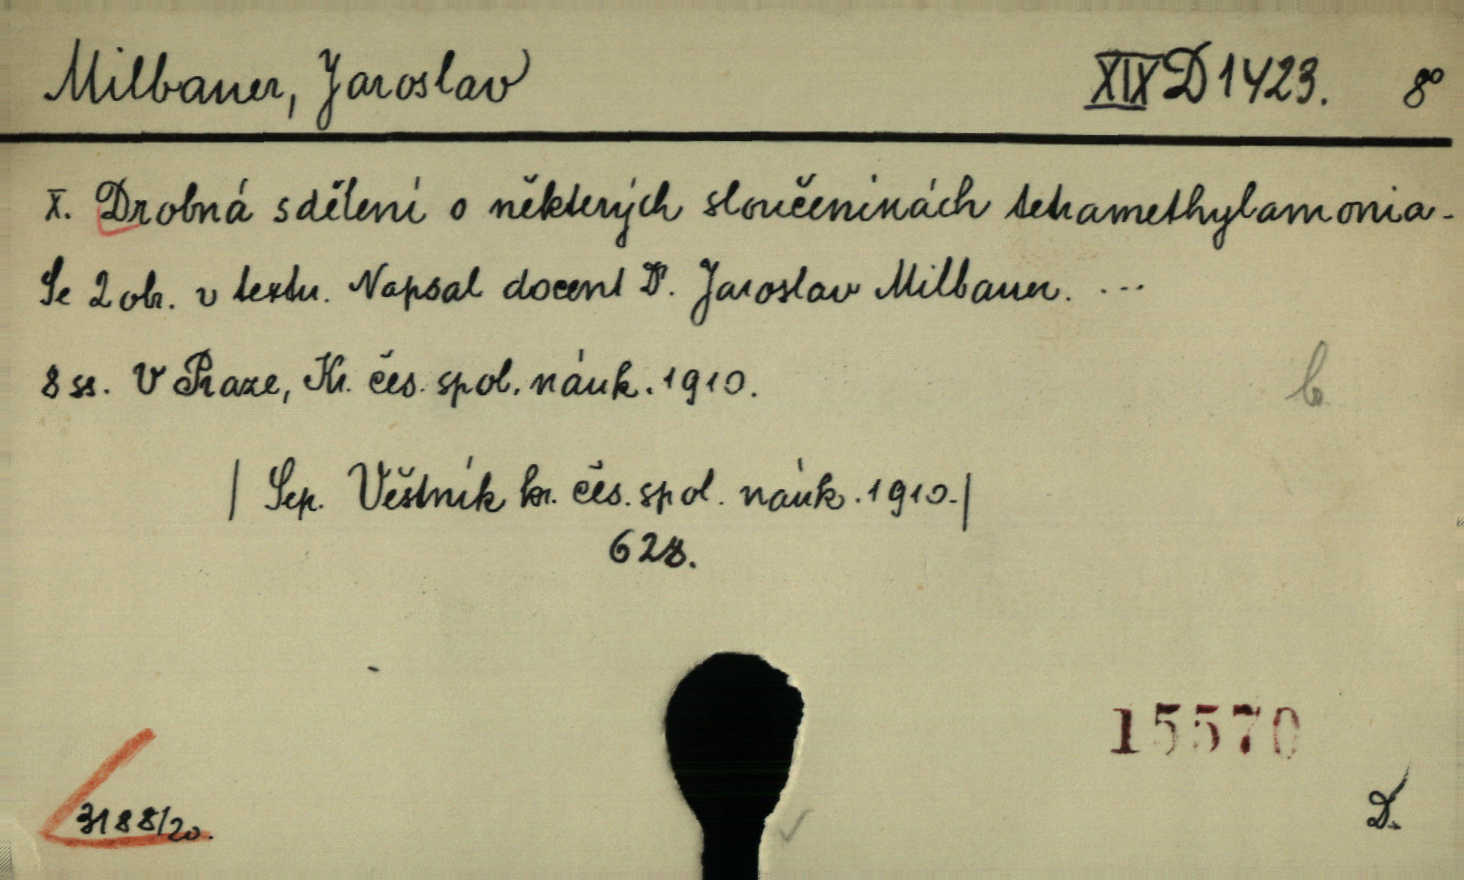 Milbauer, Jaroslav XIX D 1423. 8°
X. Drobná sdělení o některých sloučeninách tetramethylamonia.
Se 2 obr. v textu. Napsal docent Dr. Jaroslav Milbauer. ...
8 ss. V Praze, Kr. čes. spol. náuk. 1910.
| Sep. Věstník kr. čes. spol. náuk. 1910. |
628.
15570
3188/20.
D.